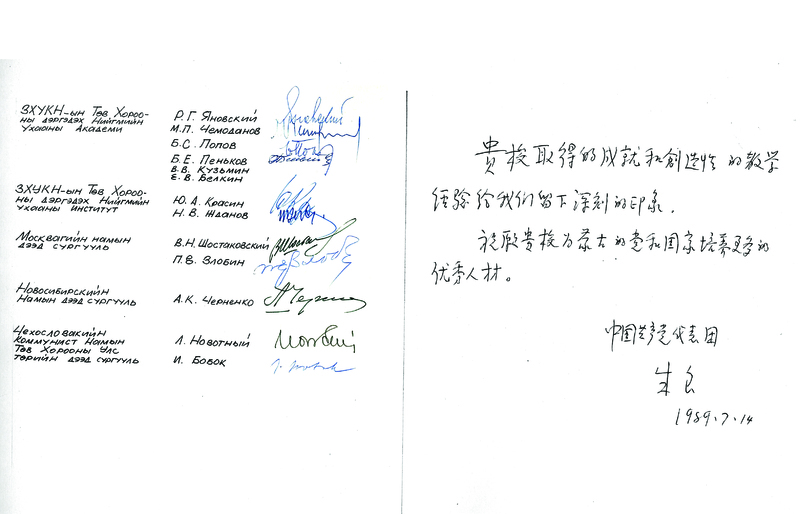 ЗХУКН-ын Төв Хороо-
ны дэргэдэх Нийгмийн
Ухааны Академи
Р.Г. Яновский
М.П. Чемоданов
Б.С. Попов
Б.Е. Пеньков
В.В. Кузьмин
Е.В. Белкин
ЗХУКН-ын Төв Хороо-
ны дэргэдэх Нийгмийн
ухааны институт
Ю.А. Красин
Н.В. Жданов
Москвагийн намын
дээд сургууль
В.Н. Шостаковский
П.В. Злобин
Новосибирскийн
Намын дээд сургууль
А.К. Черненко
Чехословакийн
Коммунист Намын
Төв Хорооны Улс
төрийн дээд сургууль
Л. Новотный
И. Бобок
貴校取得的成就和創造性的教学
经验给我们留下深刻的印象。
祝愿贵校为蒙古的党和国家培养更多的
优秀人材。
中国共产党代表团
朱良
1989.7.14